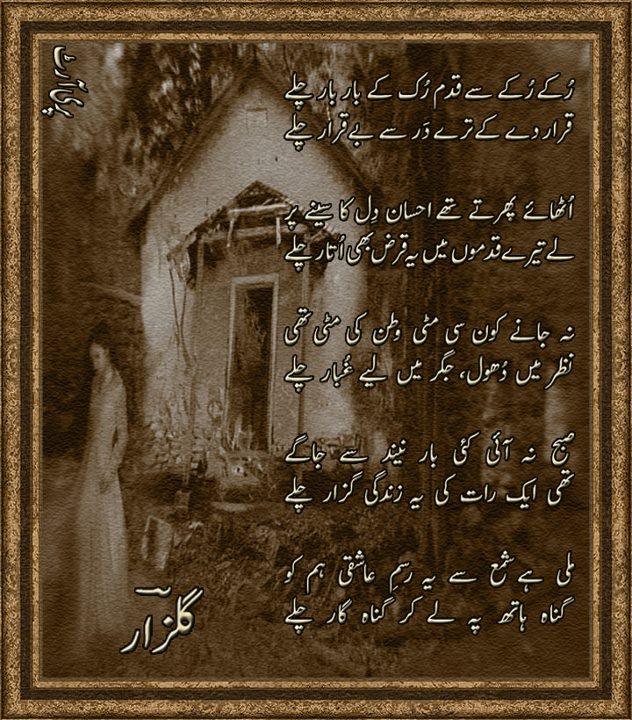 رُکے رُکے سے قدم رُک کے بار بار چلے
قرار دے کے ترے دَر سے بے قرار چلے
اُٹھائے پھرتے تھے احسان دِل کا سینے پر
لے تیرے قدموں میں یہ قرض بھی اُتار چلے
نہ جانے کون سی مٹی وطن کی مٹی تھی
نظر میں دُھول، جگر میں لیے غُبار چلے
صبح نہ آئی کئی بار نیند سے جاگے
تھی ایک رات کی یہ زندگی گزار چلے
ملی ہے شمع سے یہ رسمِ عاشقی ہم کو
گناہ ہاتھ پہ لے کر گناہ گار چلے
گلزار